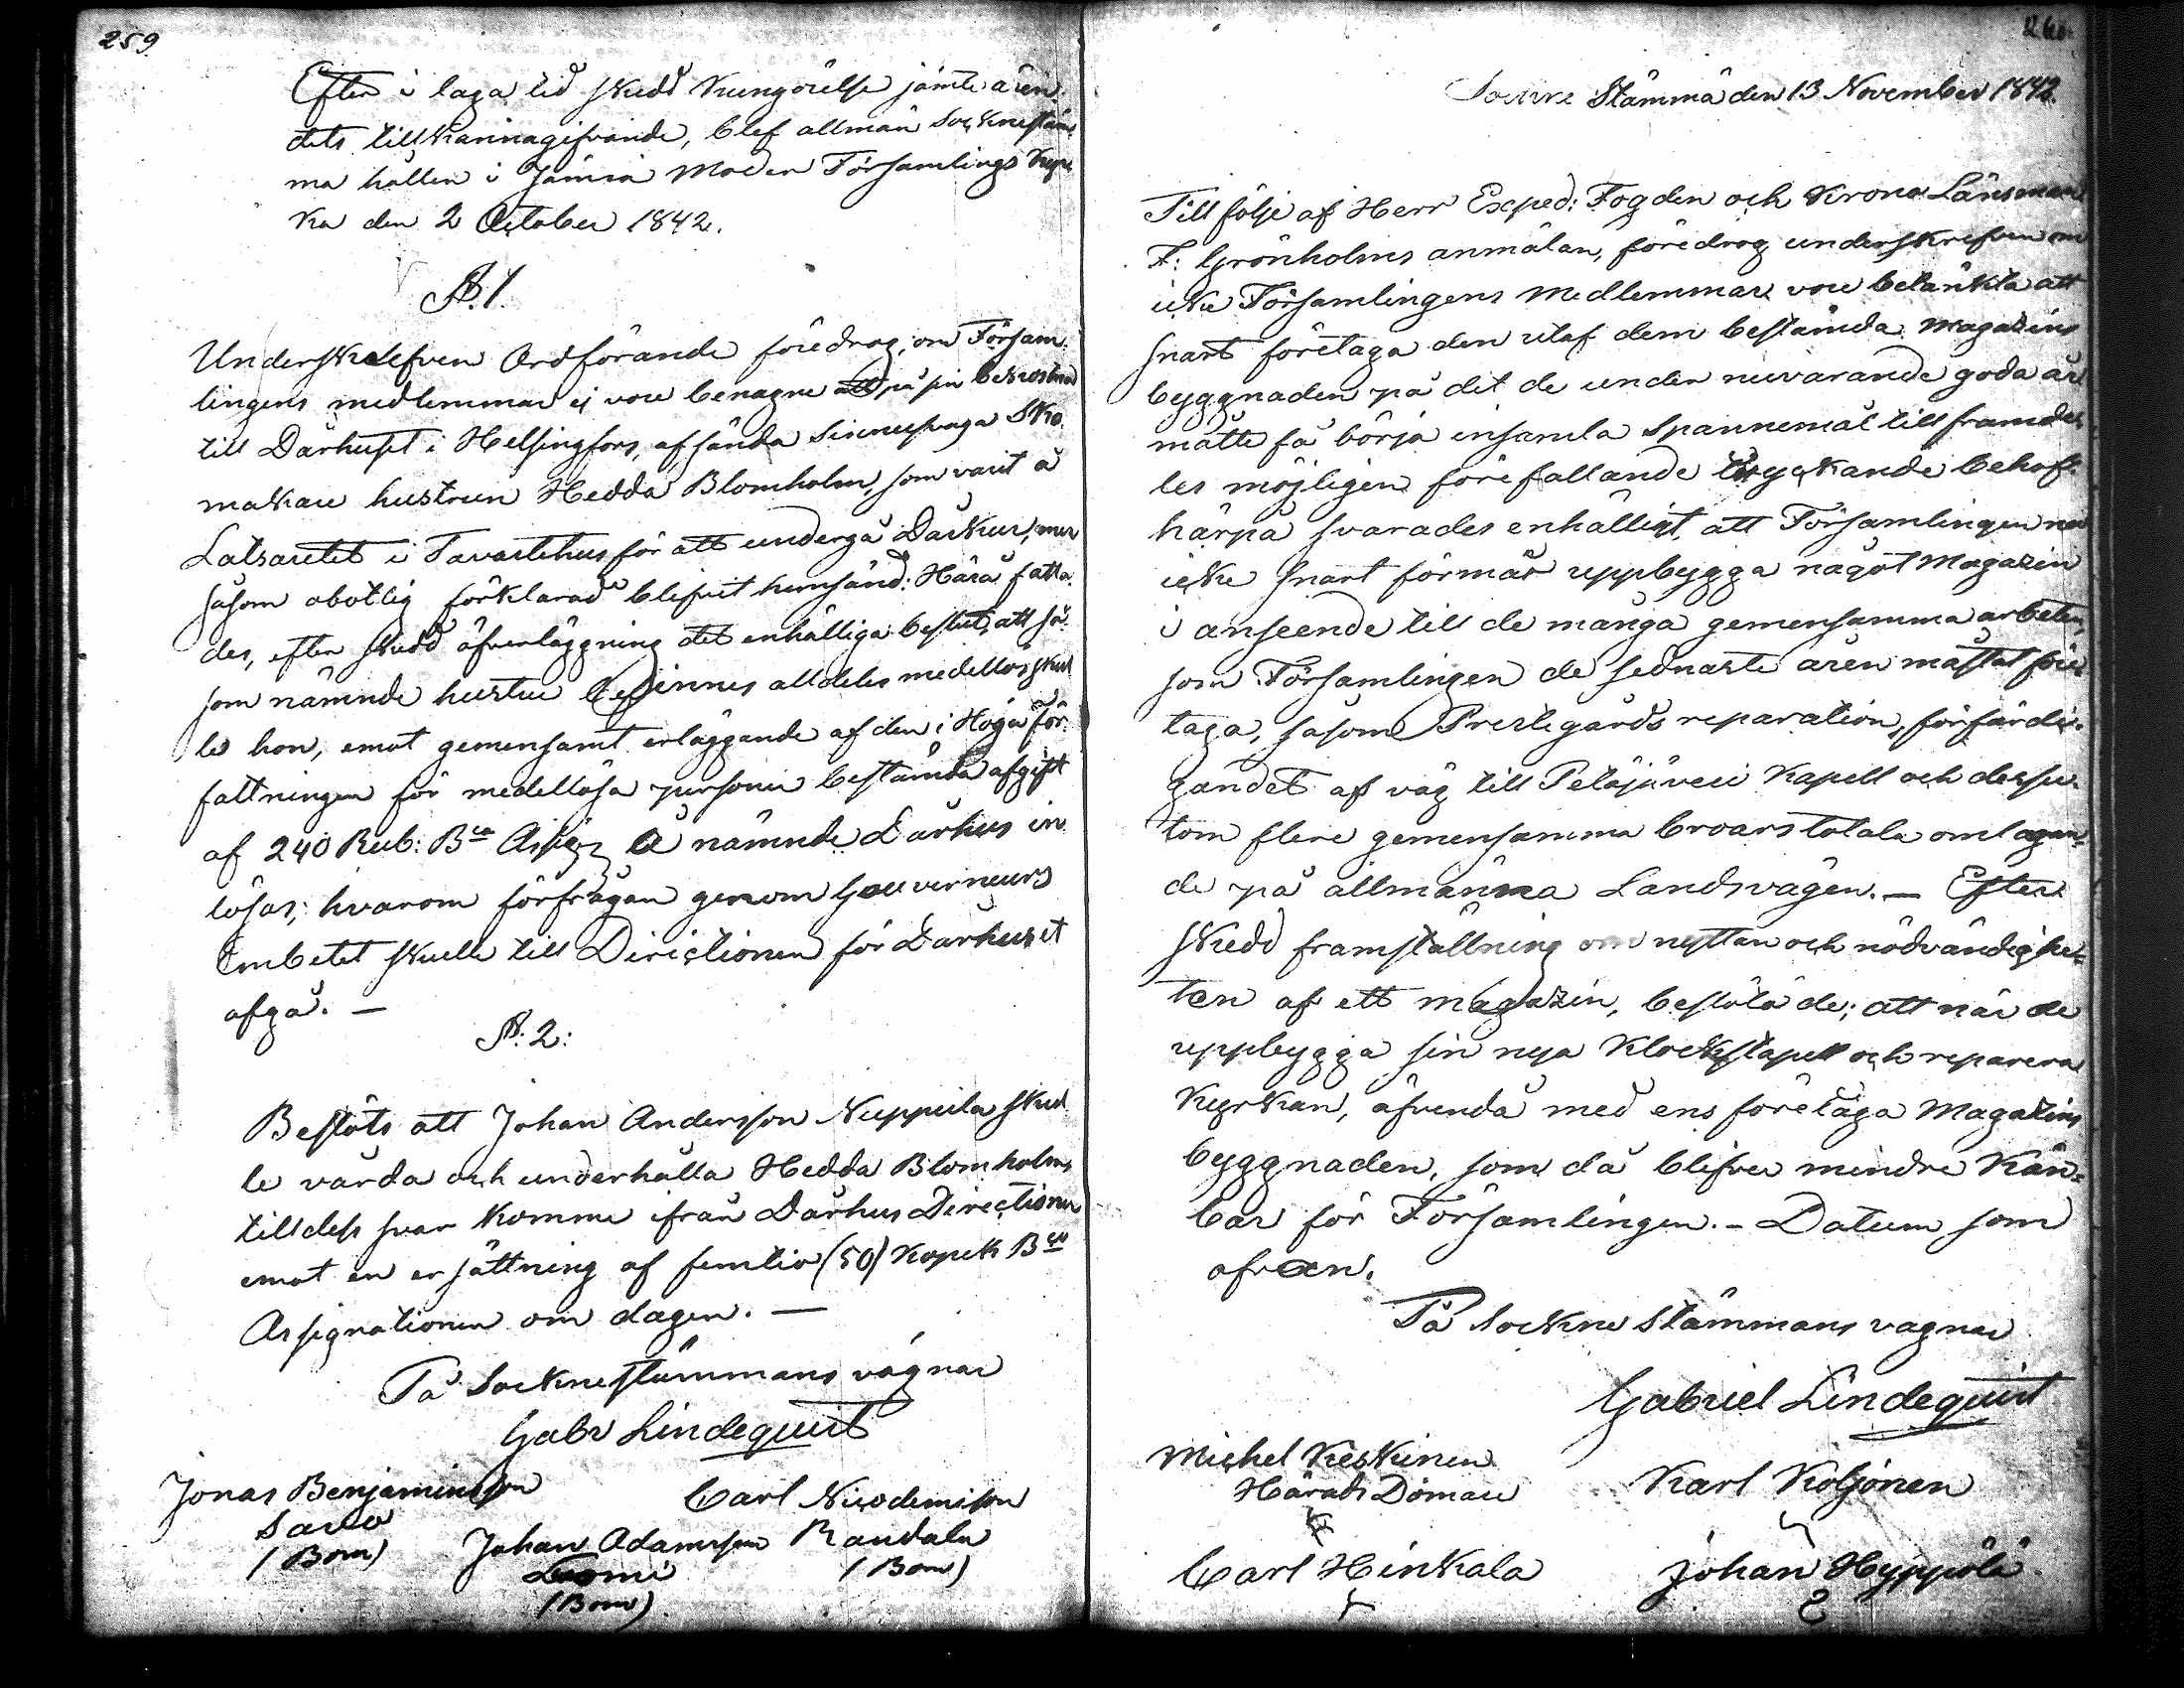 259
Efter i laga tid skedd kungörelse jämte ären-
dets tillkännagifvande, blef allmän Sockne stäm-
ma hållen i Jämsä Moder Församlings Kyr-
ka den 2 October 1842.
§. 1.
Underskrefven Ordförande föredrog, om Försam-
lingens medlemmar ej vore benägne att på sin bekostnad
till Dårhuset i Helsingfors, afsända Sinnessvaga Sko-
makare hustrun Hedda Blomholm, som varit å
Latsaretet i Tavastehus för att undergå Dårkur, men
såsom obotlig förklarad blifvit hemsänd: Härå fatta-
des, efter skedd öfverläggning det enhälliga beslut, att så-
som nämnde hustru befinnes alldeles medellös skul-
le hon, emot gemensamt erläggande af den i Höga för-
fattningen för medellösa personer bestämda afgift
af 240 Rub: Bco Assign: å nämnde Dårhus in-
lösas; hvarom förfrågan genom Gouverneurs
Embetet skulle till Directionen för Dårhuset
afgå. —
§: 2:
Beslöts att Johan Andersson Nuppula skul-
le vårda och underhålla Hedda Blomholm,
tilldess svar komme ifrån Dårhus Directionen
emot en ersättning af femtio (50) Kopek Bco
Assignationer om dagen. —
På Socknestämmans vägnar
Gabr Lindequist
Jonas Benjaminsson
Carl Nicodemisson
Sarvo
Johan Adamsson Raudala
(Bom)
Luomi
(Bom)
(Bom)
260
Sockne Stämma den 13 November 1842.
Till följe af Herr Exped: Fogden och Krono Länsman
F: Grönholms anmälan, föredrog underskrefven om
icke Församlingens Medlemmar vore betänkta att
snart företaga den utaf dem bestämda Magazins
byggnaden på det de under nuvarande goda år
måtte få börja insamla Spannemål till framde-
les möjligen förefallande tryckande behof.
härpå svarades enhälligt, att Församlingen nu
icke snart förmår uppbygga något Magazin
i anseende till de många gemensamma arbeten,
som Församlingen de sednaste åren måstat före-
taga, såsom Prestegårds reparation, förfärdi-
gandet af väg till Petäjävesi Kapell och dessu-
tom flere gemensamma broars totala omlagan-
de på allmänna Landsvägen. — Efter
skedd framställning om nyttan och nödvändighe-
ten af ett magazin, beslöto de; att när de
uppbygga sin nya Klockstapel och reparera
Kyrkan, äfvendå med ens företaga Magazins
byggnaden, som då blifver mindre Kän-
bar för Församlingen. - Datum som
ofvan.
På Sockne Stämmans vägnar
Gabriel Lindequist
Michel Keskinen
Härads Domare
Karl Koljonen
Carl Hinkala
Johan Hyppölä